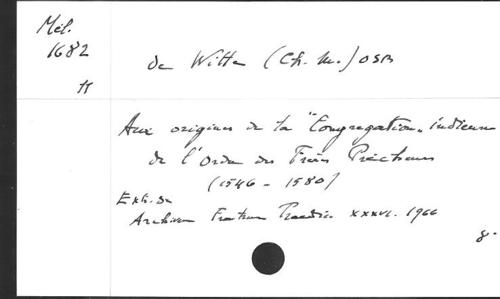 Mél.
1682
de Witte (Ch. M.) OSB
Aux origines de la "Congregation" indienne
de l'Ordre des Frères Prêcheurs
(1546 - 1580)
Extr. de
Archivum Fratrum Praedic. XXXVI. 1966
8°